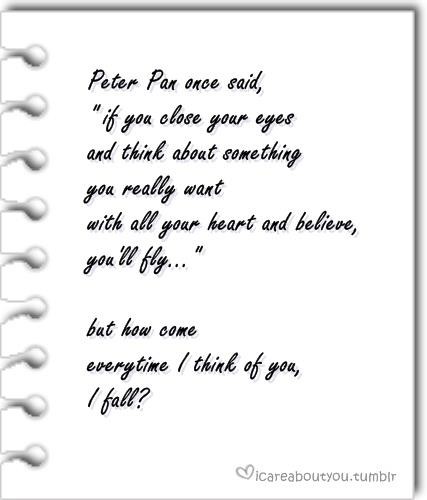 Peter Pan once said,
"if you close your eyes
and think about something
you really want
with all your heart and believe,
you'll fly..."
but how come
everytime I think of you,
I fall?
icareaboutyou.tumblr